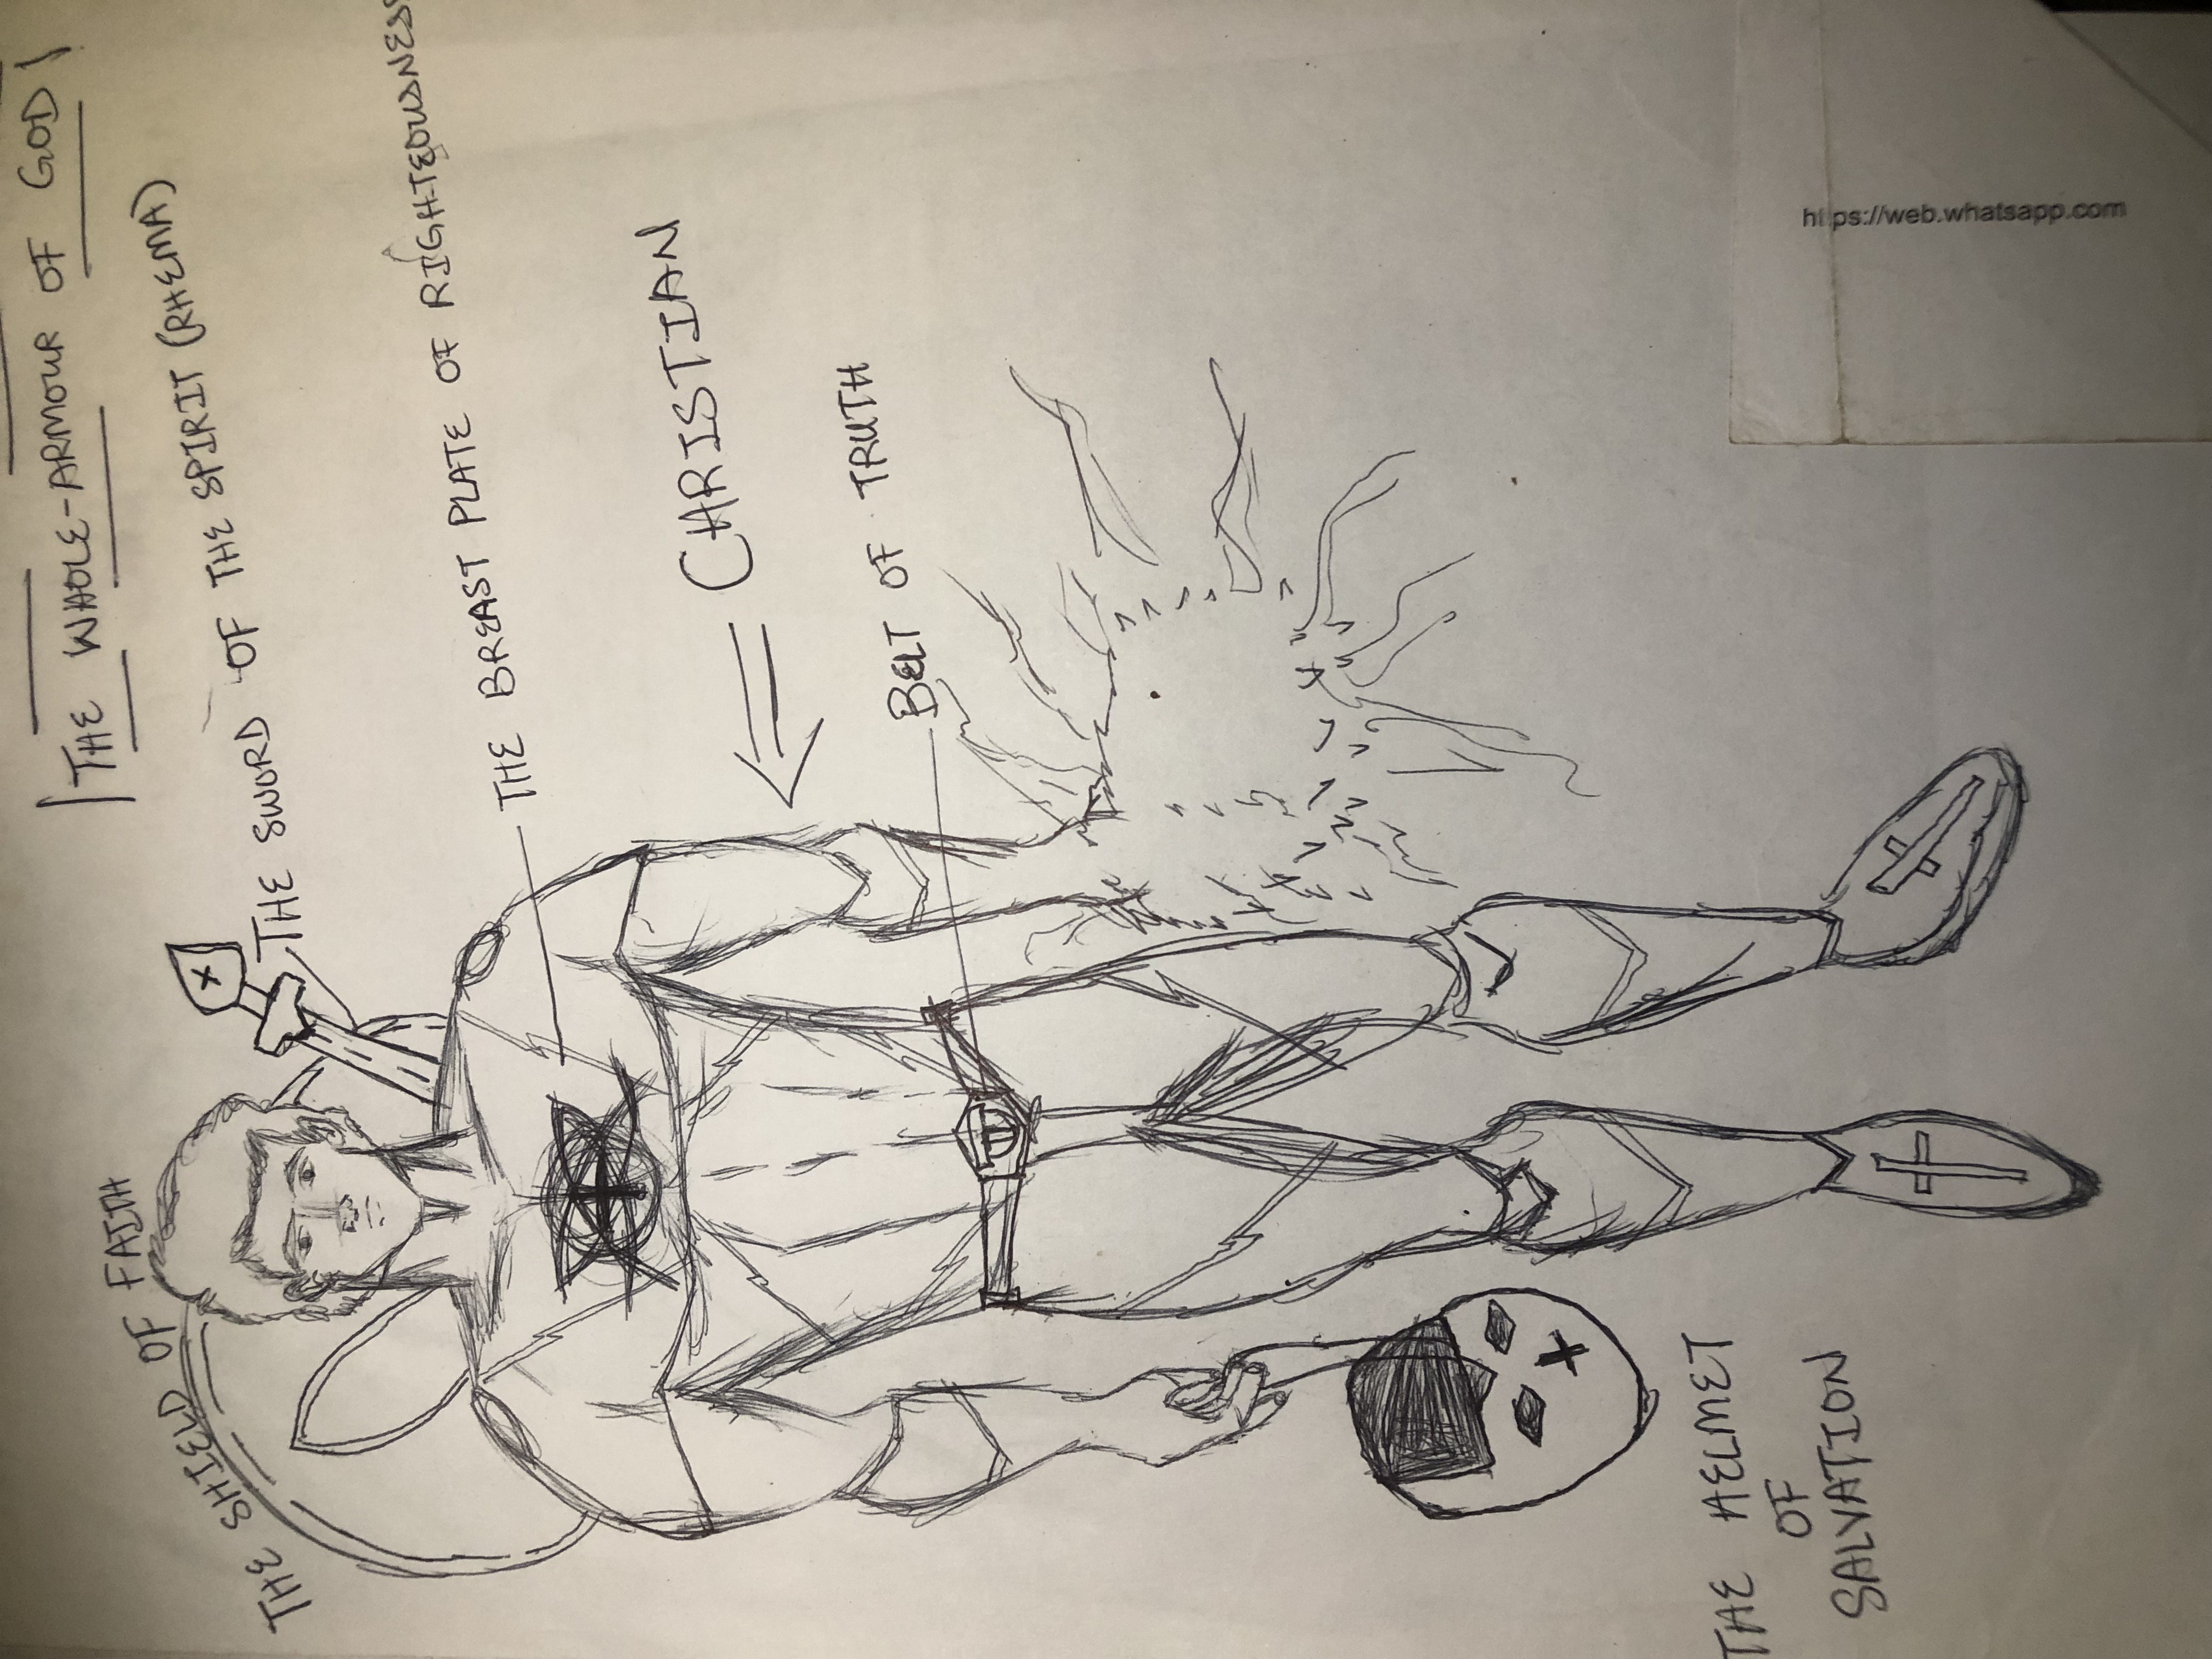 THE WHOLE-ARMOUR OF GOD!
THE SHIELD OF FAITH
THE SWORD OF THE SPIRIT (RHEMA)
THE BREAST PLATE OF RIGHTEOUSNESS
CHRISTIAN
BELT OF TRUTH
THE HELMET
OF
SALVATION
https://web.whatsapp.com